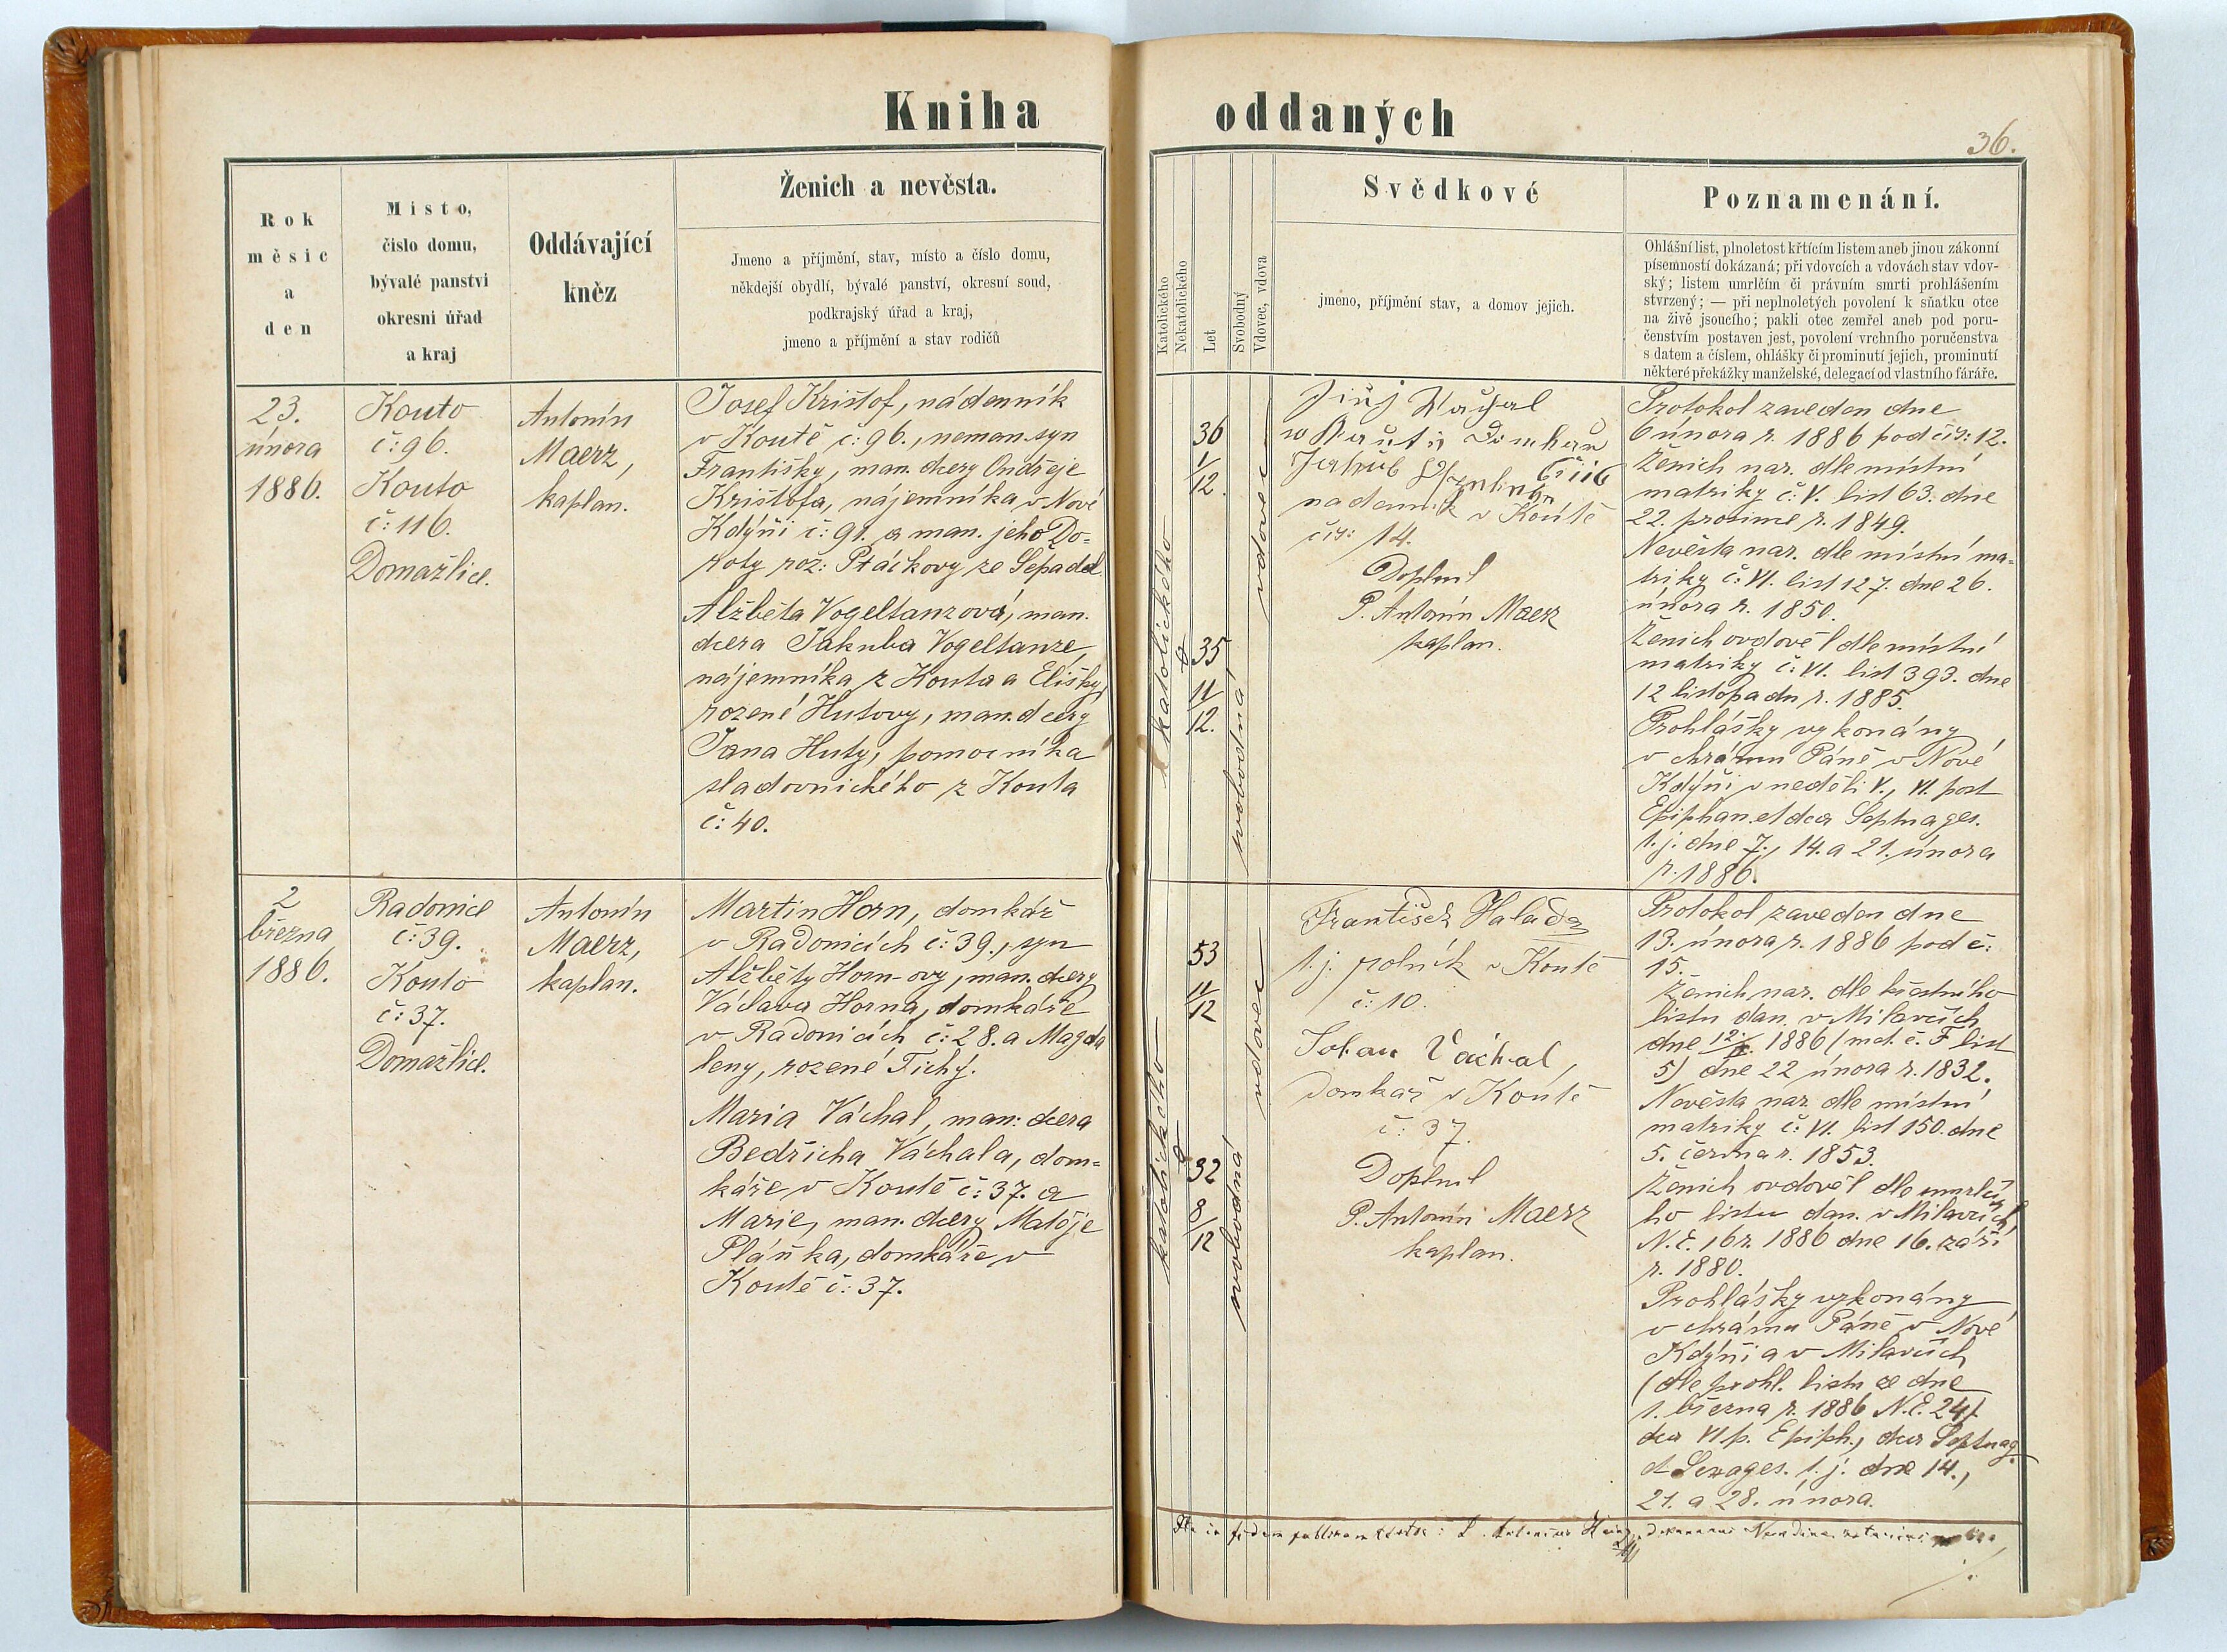 Kniha
oddaných
36.
Rok
měsíc
a
den
Místo,
číslo domu,
bývalé panství
okresní úřad
a kraj
Oddávající
kněz
Ženich a nevěsta.
Jmeno a příjmění, stav, místo a číslo domu,
někdejší obydlí, bývalé panství, okresní soud,
podkrajský úřad a kraj,
jmeno a příjmění a stav rodičů
Katolického
Nekatolického
Let
Svobodný
Vdovec, vdova
Svědkové
jmeno, příjmění stav, a domov jejich.
Poznamenání.
Ohlášní list, plnoletost křtícím listem aneb jinou zákonní
písemností dokázaná; při vdovcích a vdovách stav vdov-
ský; listem umrlčím či právním smrti prohlášením
stvrzený; — při neplnoletých povolení k sňatku otce
na živě jsoucího; pakli otec zemřel aneb pod poru-
čenstvím postaven jest, povolení vrchního poručenstva
s datem a číslem, ohlášky či prominutí jejich, prominutí
některé překážky manželské, delegací od vlastního fáráře.
23.
února
1886.
Kouto
č: 96.
Kouto
č: 116.
Domažlice.
Antonín
Maerz,
kaplan.
Josef Krištof, nádenník
v Koutě č: 96., neman. syn
Františky, man. dcery Ondřeje
Krištofa, nájemníka v Nové
Kdýni č: 91. a man. jeho Do-
roty roz: Ptáčkovy ze Sepadel
Alžběta Vogeltanzová, man.
dcera Jakuba Vogeltanze,
nájemníka z Kouta a Elišky,
rozené Hutovy, man. dcery
Jana Huty, pomocníka
sladovnického z Kouta
č: 40.
katolického
36
1/12.
vdovec
35
11/12.
svobodná
Jiřj Wachal
w Kautě Domkař
Jakub
nadenník v Koutě
čís: 14.
Doplnil
P. Antonín Maerz
kaplan.
Protokol zaveden dne
6 února r. 1886 pod čís: 12.
Ženich nar. dle místní
matriky č: V. list 63. dne
22. prosince r. 1849.
Nevěsta nar. dle místní ma-
triky č: VI. list 127. dne 26.
února r. 1850.
Ženich ovdověl dle místní
matriky č: VI. list 393. dne
12 listopadu r. 1885.
Prohlášky vykonány
v chrámu Páně v Nové
Kdýni v neděli V., VI. post
Epiphan. et dca Septuages.
t. j. dne 7., 14. a 21. února
r. 1886.
2
března
1886.
Radonice
č: 39.
Kouto
č: 37.
Domažlice.
Antonín
Maerz,
kaplan.
Martin Horn, domkář
v Radonicích č: 39., syn
Alžběty Horn-ovy, man. dcery
Václava Horna, domkáře
v Radonicích č: 28. a Magda
leny, rozené Tichý.
Maria Váchal, man: dcera
Bedřicha Váchala, dom-
káře v Koutě č: 37. a
Marie, man. dcery Matěje
Pláňka, domkáře v
Koutě č: 37.
katolického
53
11/12
vdovec
32
8/12
svobodná
František Halada
t. j. rolník v Koutě
č: 10.
Johan Váchal,
domkař v Koutě
č: 37.
Doplnil
P. Antonín Maerz
kaplan.
Protokol zaveden dne
13. února r. 1886 pod č:
15.
Ženich nar. dle křestního
listu dan. v Milavčích
dne 12. 1886 (mat. č. F list
5) dne 22 února r. 1832.
Nevěsta nar. dle místní
matriky č: VI. list 150. dne
5. června r. 1853.
Ženich ovdověl dle umrlčí
ho listu dan. v Milavčích
N. č. 16 r. 1886 dne 16. září
r. 1880.
Prohlášky vykonány
v chrámu Páně v Nové
Kdýni a v Milavčích
(dle prohl. listu ze dne
1. března r. 1886 N. č. 24)
dca VI. p. Epiph., dca Septuag.
et Sexages. t. j. dne 14.,
21. a 28. února.
in fidem publicam